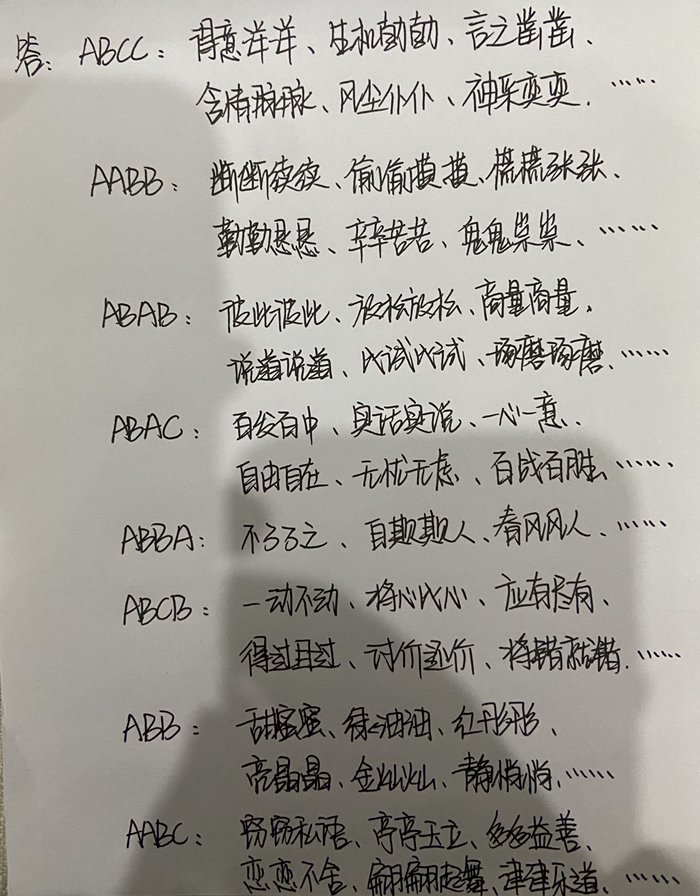 答: ABCC: 得意洋洋、生机勃勃、言之凿凿、
含情脉脉、风尘仆仆、神采奕奕、……
AABB: 断断续续、偷偷摸摸、慌慌张张、
勤勤恳恳、辛辛苦苦、鬼鬼祟祟、……
ABAB: 彼此彼此、放松放松、商量商量、
说道说道、比试比试、琢磨琢磨、……
ABAC: 百发百中、实话实说、一心一意、
自由自在、无忧无虑、百战百胜、……
ABBA: 不了了之、自欺欺人、春风风人、……
ABCB: 一动不动、将心比心、应有尽有、
得过且过、讨价还价、将错就错、……
ABB: 甜蜜蜜、绿油油、红彤彤、
亮晶晶、金灿灿、静悄悄、……
AABC: 窃窃私语、亭亭玉立、多多益善、
恋恋不舍、翩翩起舞、津津乐道、……